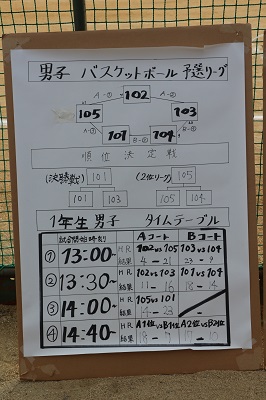 男子 バスケットボール 予選リーグ
A-① 102 A-②
105 103
A-③ 101 B-② 104 B-①
順位決定戦
(決勝戦) (2位リーグ)
101 105
101 103 105 104
1年生男子 タイムテーブル
試合開始時刻 HR Aコート Bコート
① 13:00~ HR 102 vs 105 103 vs 104
結果 4 - 21 23 - 9
② 13:30~ HR 102 vs 103 101 vs 104
結果 11 - 16 18 - 14
③ 14:00~ HR 105 vs 101
結果 14 - 23
④ 14:40~ HR A1位 vs B1位 A2位 vs B2位
結果 18 - 9 17 - 10